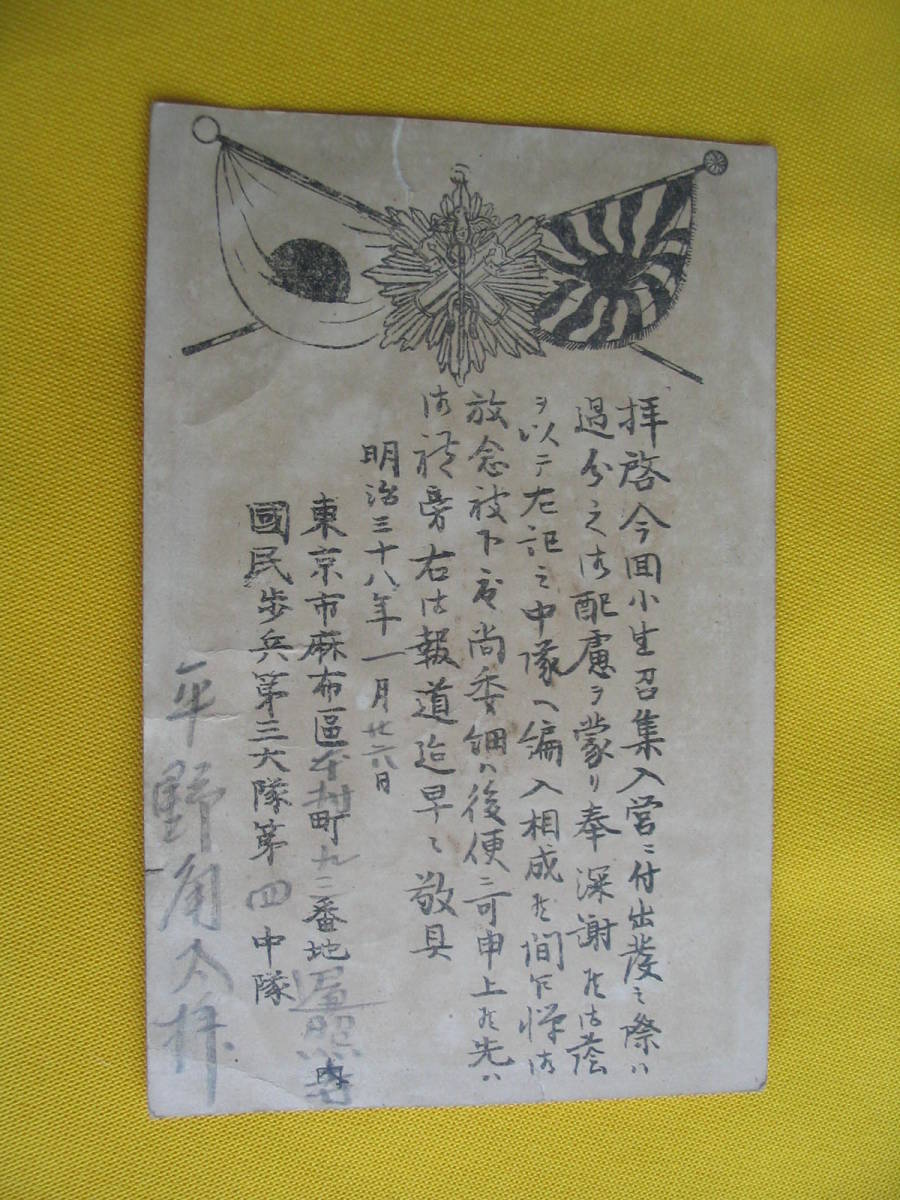 拝啓今回小生召集入営ニ付出発之際ハ
過分之御配慮ヲ蒙リ奉深謝候御蔭
ヲ以テ左記之中隊ヘ編入相成候間乍憚御
放念被下度尚委細ハ後便ニ可申上候先ハ
御礼旁右御報道迄早々敬具
明治三十八年一月廿六日
東京市麻布區本村町九二番地 照寺内
國民歩兵第三大隊第四中隊
平野角太郎